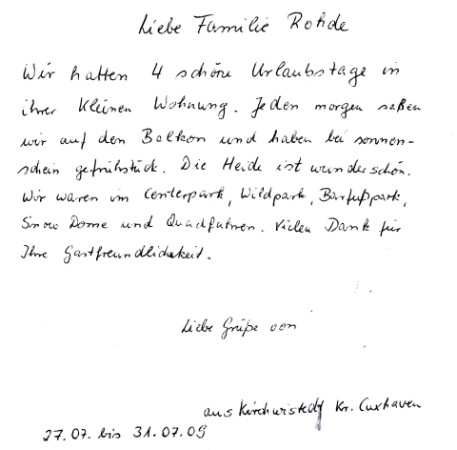 Liebe Familie Rohde
Wir hatten 4 schöne Urlaubstage in
ihrer kleinen Wohnung. Jeden morgen saßen
wir auf den Balkon und haben bei sonnen-
schein gefrühstück. Die Heide ist wunderschön.
Wir waren im Centerpark, Wildpark, Barfußpark,
Snow Dome und Quadfahren. Vielen Dank für
Ihre Gastfreundlichkeit.
Liebe Grüße von
aus Kirchwistedt Kr. Cuxhaven
27.07. bis 31.07.09